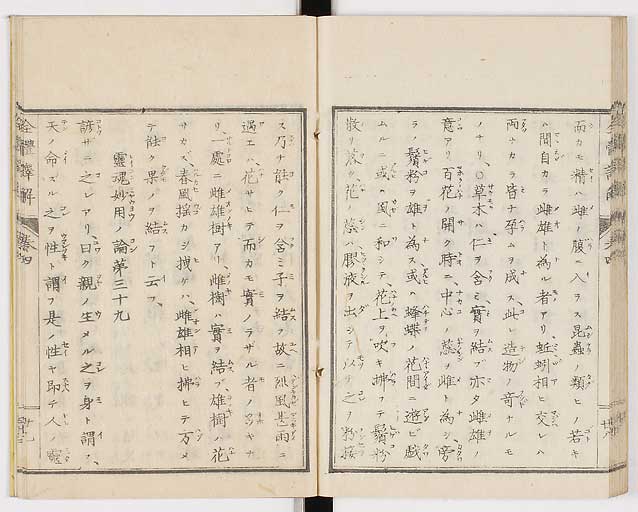 而カモ精ハ雌ノ腹ニ入ラス昆蟲ノ類ヒノ若キ
ハ間自カラ雌雄ト為ル者アリ、蚯蚓相ヒ交レハ
両ナカラ皆ナ孕ムヲ成ス、此レ造物ノ奇ナルモ
ノナリ、〇草木ハ仁ヲ含ミ實ヲ結ブ亦タ雌雄ノ
意アリ百花ノ開ク時ニ、中心ノ蕊ヲ雌ト為シ旁
ラノ鬚粉ヲ雄ト為ス、或ハ蜂蝶ノ花間ニ遊ビ戯
ムルニ或ハ風ニ和シテ花上ヲ吹キ拂フテ鬚粉
散リ落ク、花蕊ハ膠液ヲ出シテ以テ之ノ粉接
ス乃ナ能ク仁ヲ含ミ子ヲ結フ故ニ烈風甚雨ニ
遇エハ、花サヒテ而カモ實ノラザル者ノ多キナ
リ、一處ニ雌雄樹アリ、雌樹ハ實ヲ結ブ、雄樹ノ花
サカズ、春風揺カシ拽ケハ、雌雄相ヒ拂ヒテ方メ
テ能ク果ノヲ結フト云フ、
靈魂妙用ノ論第三十九
諺ザニ之レアリ、曰ク親ノ生メル之ヲ身ト謂フ、
天ノ命スル之ヲ性ト謂フ是ノ性ヤ即チ人ノ靈
全體擇解